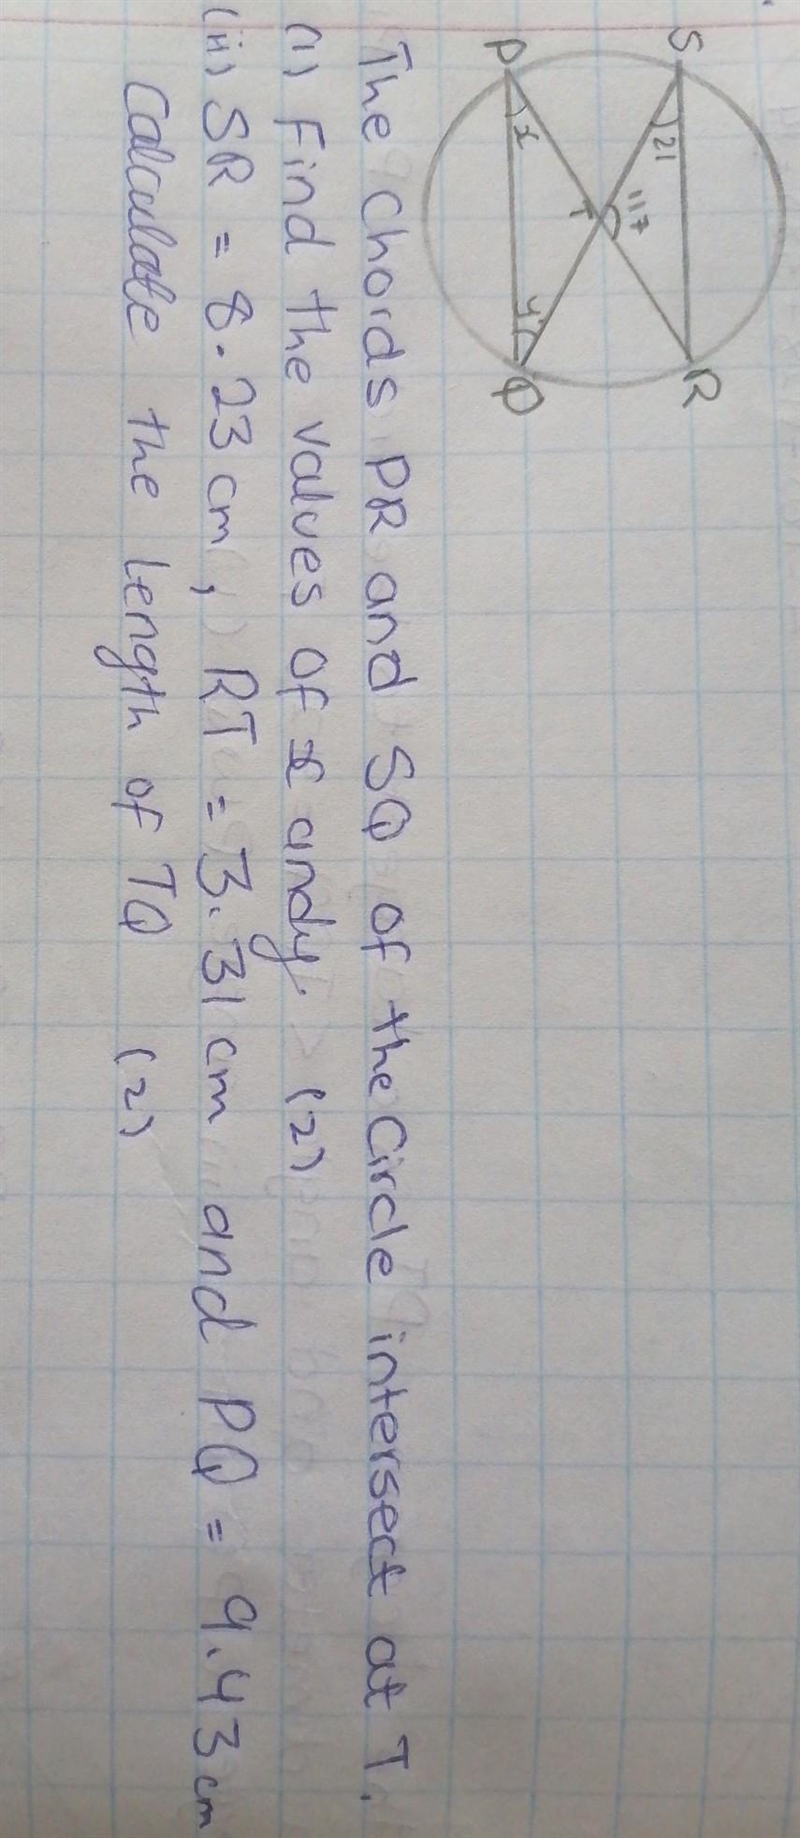 S
R
21
117
T
x
y
P
Q
The chords PR and SQ of the Circle intersect at T.
(i) Find the values of x and y. (2)
(ii) SR = 8.23 cm, RT = 3.31 cm and PQ = 9.43 cm
Calculate the length of TQ (2)